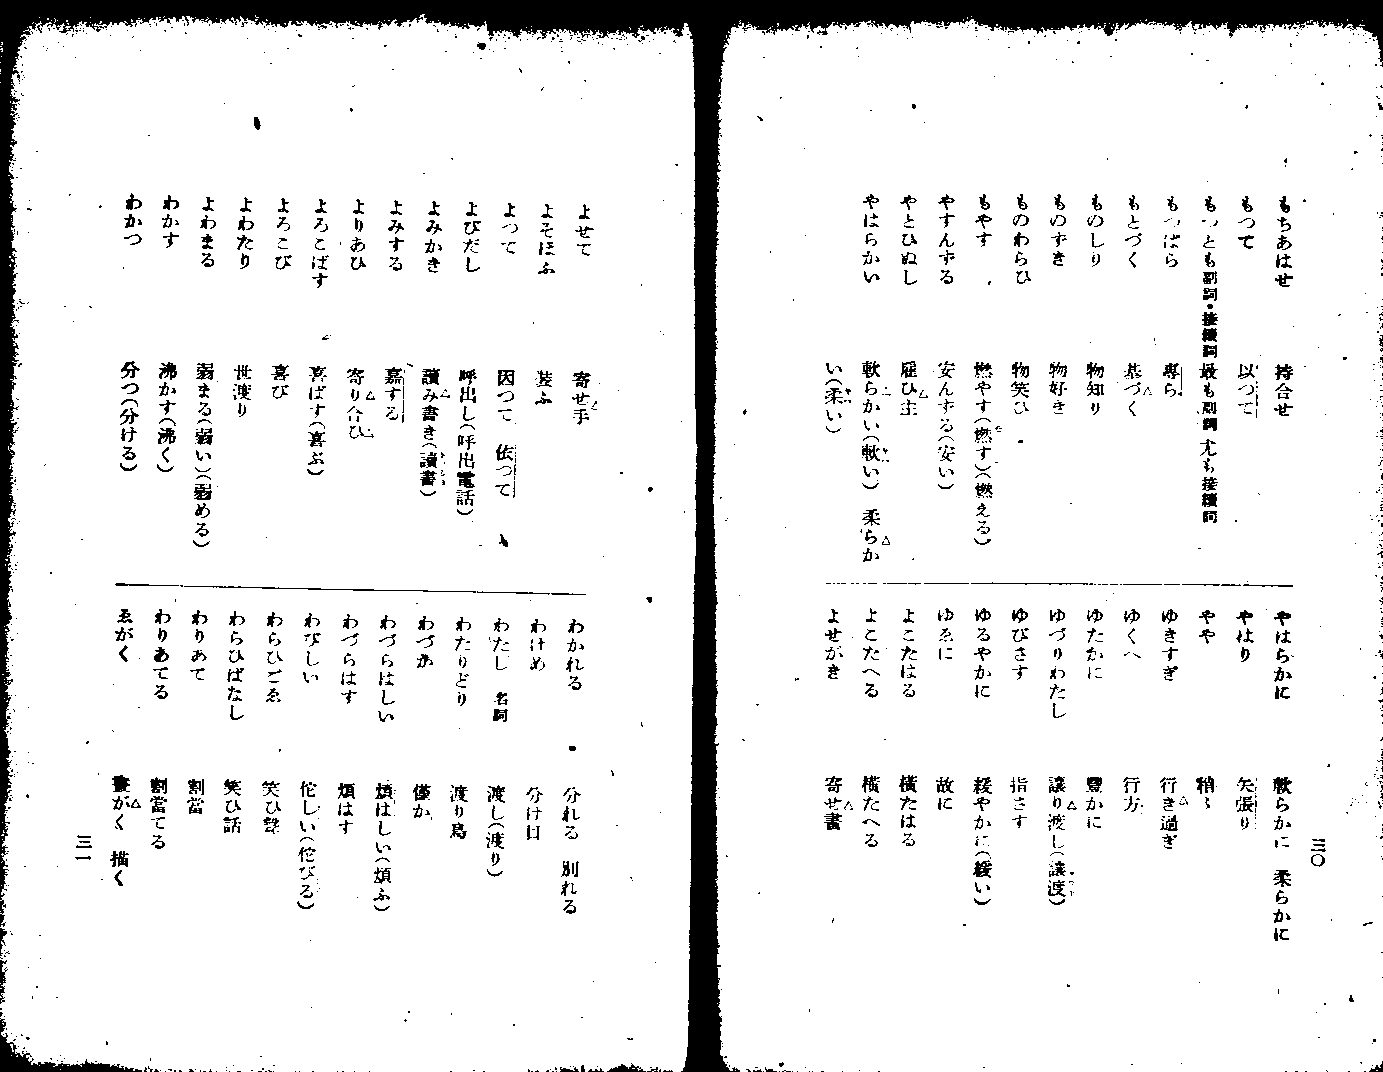 もちあはせ 持合せ
もつて 以つて
もつとも副詞・接續詞 最も副詞 尤も接續詞
もつぱら 專ら
もとづく 基づく
ものしり 物知り
ものずき 物好き
ものわらひ 物笑ひ
もやす 燃やす(燃す)(燃える)
やすんずる 安んずる(安い)
やとひぬし 雇ひ主
やはらかい 軟らかい(軟い) 柔らか
い(柔い)
やはらかに 軟らかに 柔らかに
やはり 矢張り
やや 稍〻
ゆきすぎ 行き過ぎ
ゆくへ 行方
ゆたかに 豐かに
ゆづりわたし 讓り渡し(讓渡)
ゆびさす 指さす
ゆるやかに 緩やかに(緩い)
ゆゑに 故に
よこたはる 横たはる
よこたへる 横たへる
よせがき 寄せ書
三〇
よせて 寄せ手
よそほふ 裝ふ
よつて 因つて 依つて
よびだし 呼出し(呼出電話)
よみかき 讀み書き(讀書)
よみする 嘉する
よりあひ 寄り合ひ
よろこばす 喜ばす(喜ぶ)
よろこび 喜び
よわたり 世渡り
よわまる 弱まる(弱い)(弱める)
わかす 沸かす(沸く)
わかつ 分つ(分ける)
わかれる 分れる 別れる
わけめ 分け目
わたし 名詞 渡し(渡り)
わたりどり 渡り鳥
わづか 僅か
わづらはしい 煩はしい(煩ふ)
わづらはす 煩はす
わびしい 佗しい(佗びる)
わらひごゑ 笑ひ聲
わらひばなし 笑ひ話
わりあて 割當
わりあてる 割當てる
ゑがく 畫がく 描く
三一